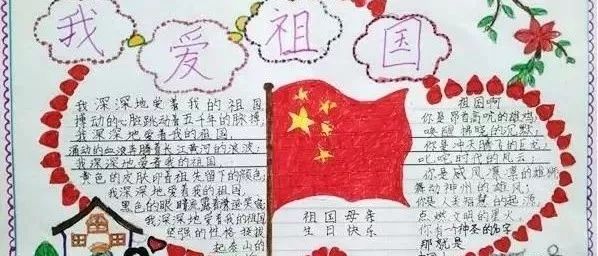 我爱祖国
我深深地爱着我的祖国,
搏动的心脏跳动着五千年的脉搏,
我深深地爱着我的祖国.
涌动的血液奔腾着长江黄河的浪波;
我深深地爱着我的祖国
黄色的皮肤印着祖先留下的颜色;
我深深地爱着我的祖国.
黑色的眼睛流露着
我深深地爱着我的祖国
坚强的性格挺拔
起泰山的
祖国母亲
生日快乐
祖国啊
你是昂首高吭的雄鸡,
唤醒拂晓的沉默;
你是冲天腾飞的巨龙
叱咤时代的风云;
你是威风凛凛的雄狮
舞动神州的雄风;
你是人类智慧的起源,
点燃文明的星火,
你有一个神圣的名字
那就是